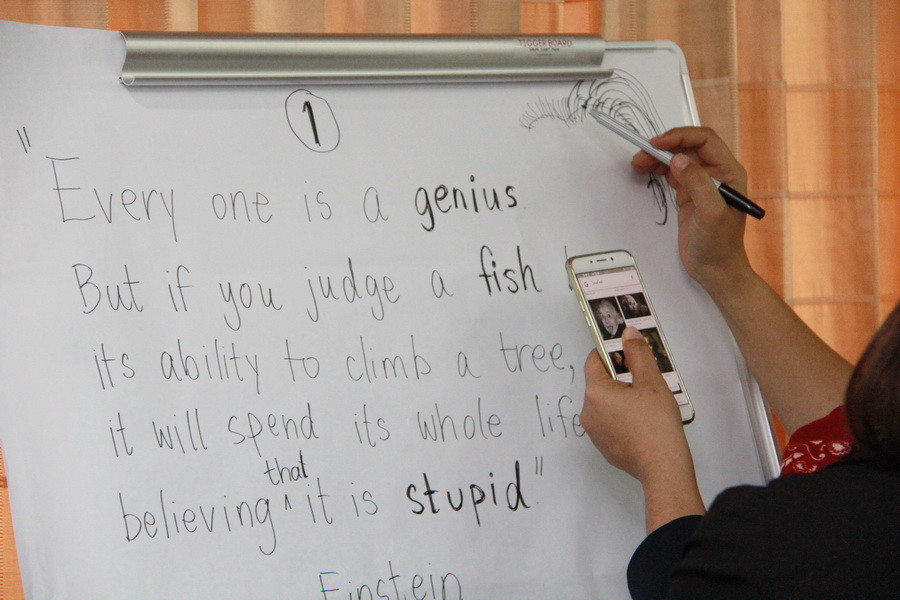 TIGGER BOARD
1
"Every one is a genius
But if you judge a fish
its ability to climb a tree,
it will spend its whole life
believing that it is stupid"
Einstein